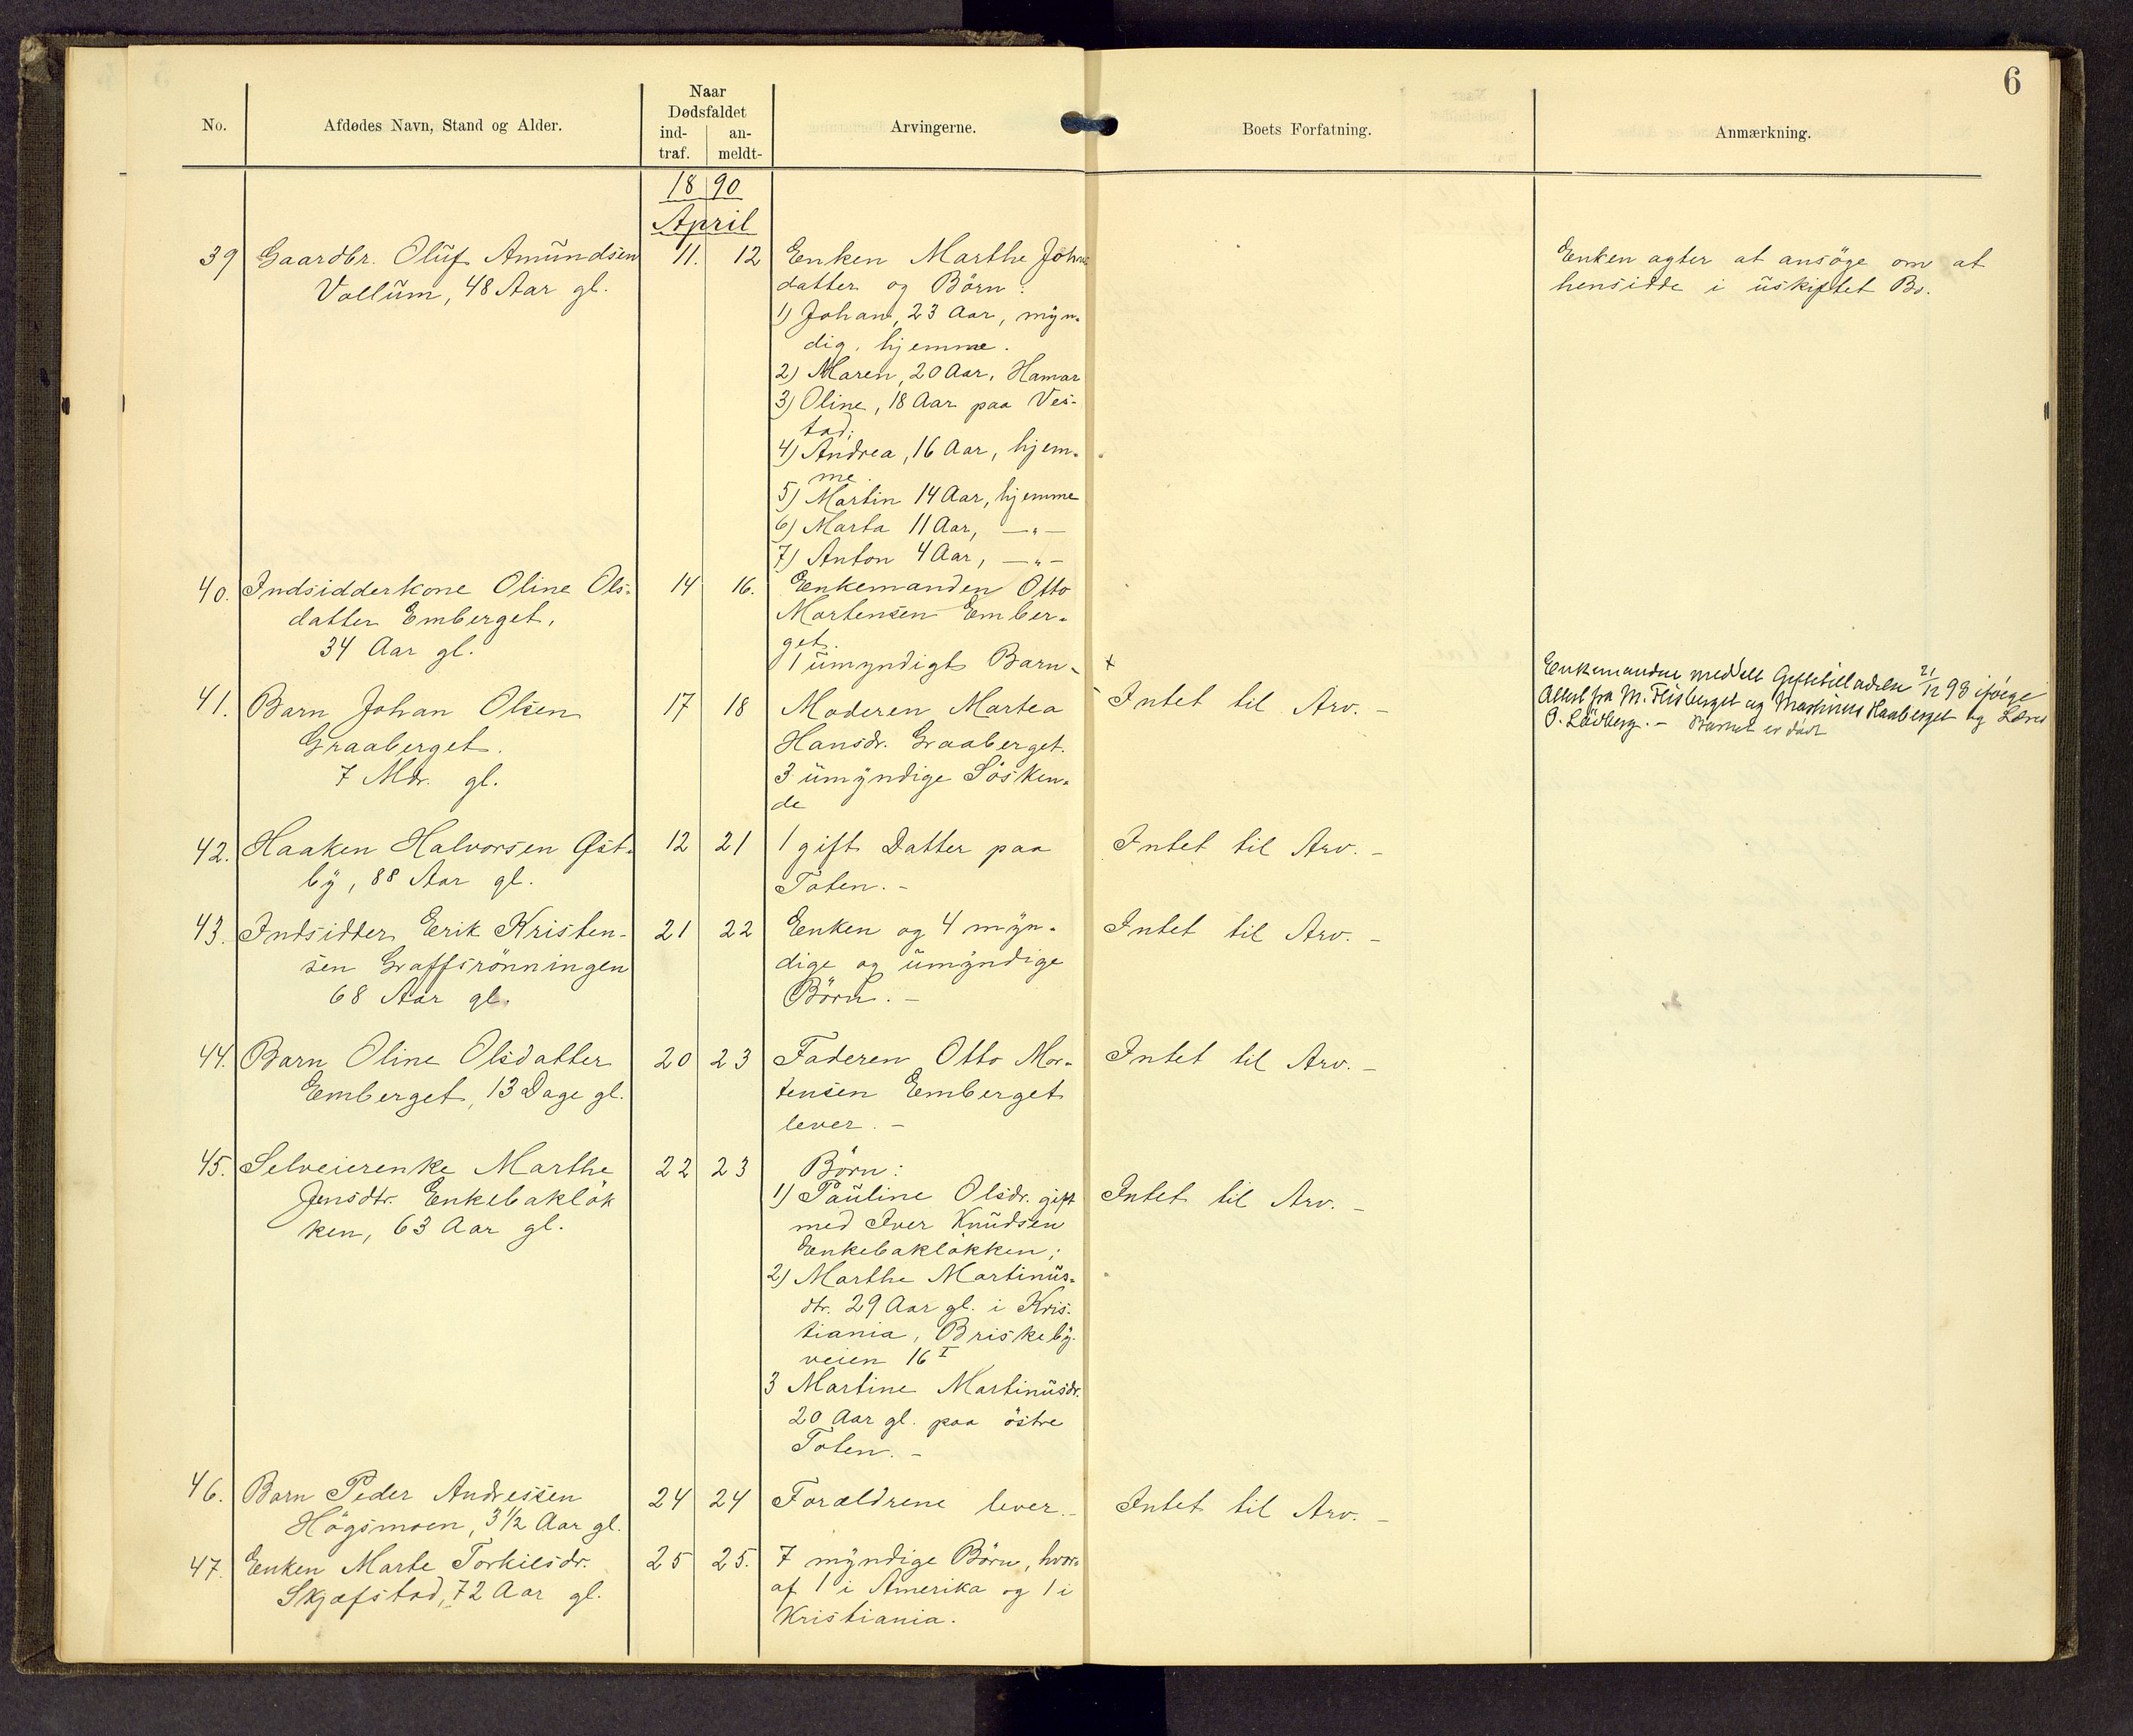 6
No.
Afdødes Navn, Stand og Alder.
Naar
Dødsfaldet
ind-
traf.
an-
meldt-
Arvingerne.
Boets Forfatning.
Anmærkning.
18 90
April
39 Gaardbr. Oluf Amundsen
Vollum, 48 Aar gl.
11. 12
Enken Marthe Johns
datter og Börn:
1) Johan, 23 Aar, myn-
dig, hjemme.
2) Maren, 20 Aar, Hamar
3) Oline, 18 Aar paa Ves-
tad;
4) Andrea, 16 Aar, hjem-
me.
5) Martin 14 Aar, hjemme
6) Marta 11 Aar, —"—
7) Anton 4 Aar, —"—
Enken agter at ansöge om at
hensidde i uskiftet Bo.
40. Indsidderkone Oline Ols-
datter Emberget,
34 Aar gl.
14 16.
Enkemanden Otto
Mortensen Ember-
get.
1 umyndigt Barn -
+
Enkemanden meddelt Giftetilladelse 21/12 98 ifølge
Attest fra M. Flisberget og Martinus Haaberget og
O. Lövberg. - Barnet er död
41. Barn Johan Olsen
Graaberget.
7 Mdr. gl.
17 18
Moderen Martea
Hansdr. Graaberget.
3 umyndige Sösken-
de
- Intet til Arv. -
42. Haaken Halvorsen Øst-
by, 88 Aar gl.
12 21
1 gift Datter paa
Toten. -
Intet til Arv. -
43. Indsidder Erik Kristen-
sen Graffsrönningen
68 Aar gl.
21 22
Enken og 4 myn-
dige og umyndige
Börn. -
Intet til Arv. -
44. Barn Oline Olsdatter
Emberget, 13 Dage gl.
20 23
Faderen Otto Mor-
tensen Emberget
lever. -
Intet til Arv. -
45. Selveierenke Marthe
Jensdtr. Enkebaklök
ken, 63 Aar gl.
22 23
Börn:
1) Pauline Olsdr. gift
med Iver Knudsen
Enkebaklökken;
2) Marthe Martinus-
dtr. 29 Aar gl. i Kris-
tiania, Briskeby-
veien 16 I
3 Martine Martinusdr.
20 Aar gl. paa östre
Toten. -
Intet til Arv. -
46. Barn Peder Andresen
Högsmoen, 3 1/2 Aar gl.
24 24
Forældrene lever. -
Intet til Arv. -
47. Enken Marte Torkilsdr.
Skjæfstad, 72 Aar gl.
25 25.
7 myndige Börn, hvor-
af 1 i Amerika og 1 i
Kristiania.